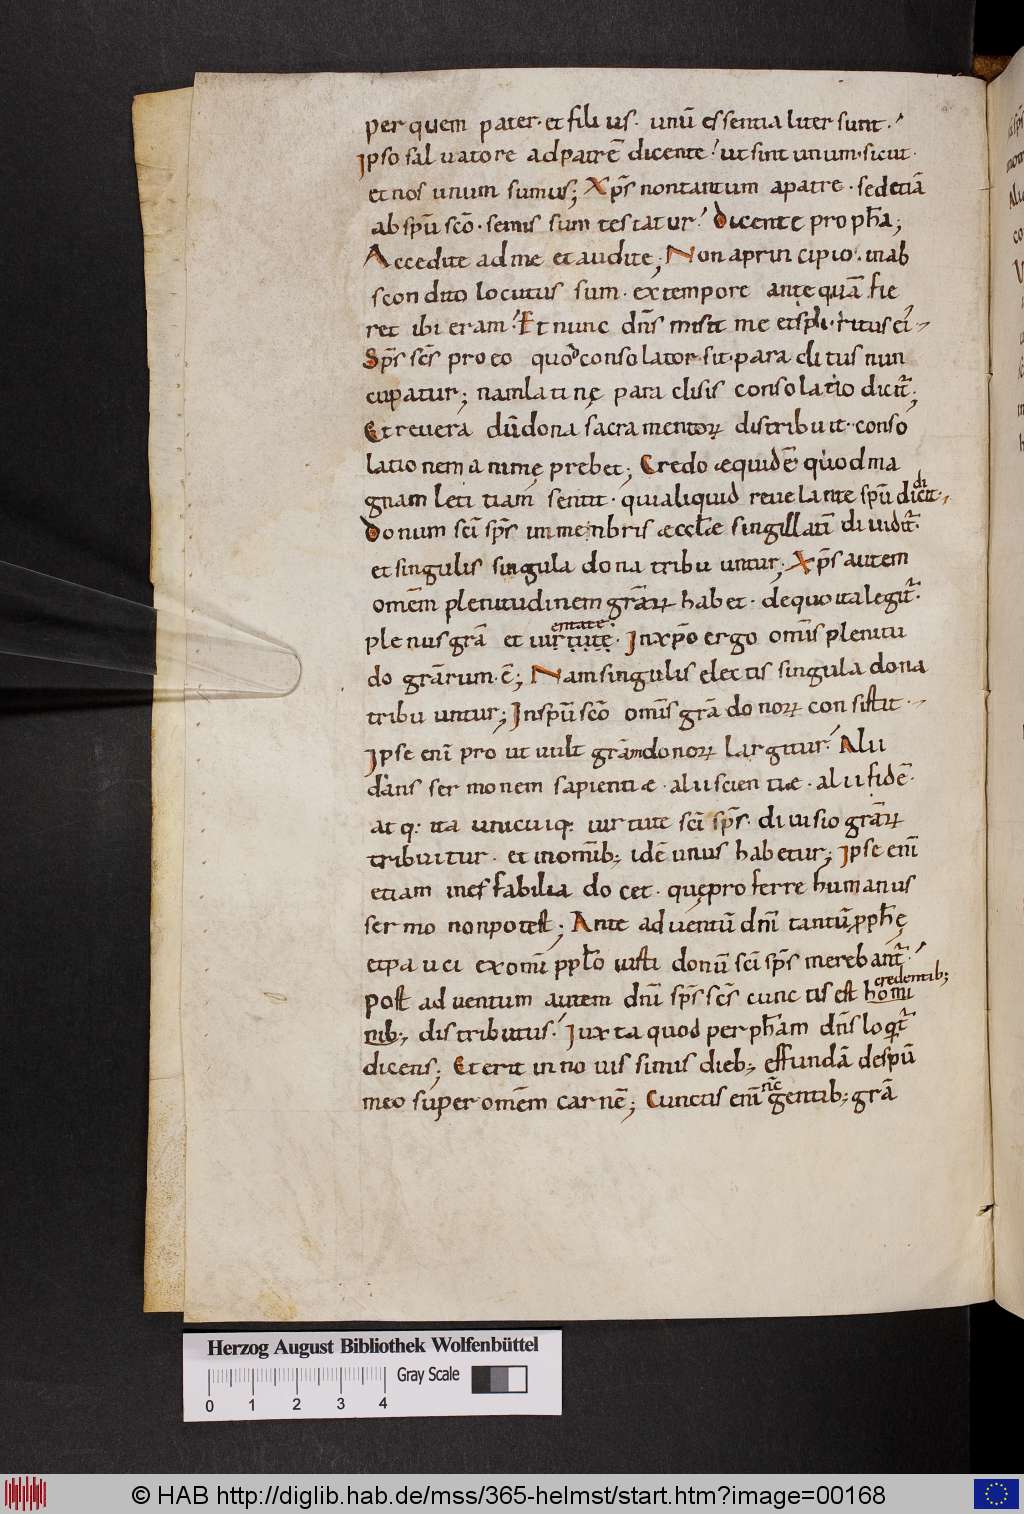 per quem pater· et filius· unū essentialiter sunt·
ipso saluatore ad patrē dicente· ut sint unum· sicut·
et nos unum sumus; Xp̄s non tantum a patre· sed etiā
ab sp̄u sc̄o· se mis sum testatur· Dicente propha;
Accedite ad me et audite; Non a principio· in ab
scondito locutus sum· ex tempore antequā fie
ret ibi eram· Et nunc dn̄s misit me et sp̄s· ei·
Sp̄s sc̄s pro eo quod consolator sit· paraclitus nun
cupatur; nam latine paraclisis consolatio dicit̄;
Et reuera dū dona sacramentoꝝ distribuit· conso
lationem animę prebet; Credo æquidē quod ma
gnam letitiam sentit· qui aliquid reuelante sp̄u didicit·
Donum sc̄i sp̄s in membris æccl̄æ singillatī diuidit̄·
et singulis singula dona tribuuntur; Xp̄s autem
omēm plenitudinem grāꝝ habet· de quo ita legit̄·
plenus grā et uirtute entate· In xp̄o ergo om̄is plenitu
do grārum ē; Nam singulis electis singula dona
tribuuntur; In sp̄u sc̄o om̄is grā donoꝝ consistit·
Ipse enī prout uult grām donoꝝ largitur· Alii
dans sermonem sapientiæ· alii scientiæ· alii fidē·
atq: ita unicuiq: uirtute sc̄i sp̄s· diuisio grāꝝ
tribuitur· et in omīb; idē unus habetur; Ipse enī
etiam ineffabilia docet· quę proferre humanus
sermo non potest; Ante aduentū dn̄i tantū pph̄ę
et pauci ex omī pplo iusti donū sc̄i sp̄s merebant̄·
Post aduentum autem dn̄i sp̄s sc̄s cunctis est credentib; homi
nib; distributus· Iuxta quod per ph̄am dn̄s loqt̄
dicens; Et erit in nouissimis dieb; effundā de sp̄u
meo super omēm carnē; Cunctis enī nc̄ gentib; grā
Herzog August Bibliothek Wolfenbüttel
Gray Scale
0 1 2 3 4
© HAB http://diglib.hab.de/mss/365-helmst/start.htm?image=00168